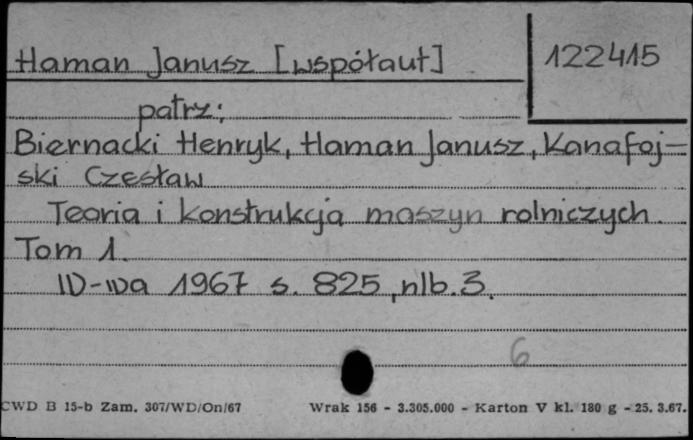 Haman Janusz [współaut]
122415
patrz:
Biernacki Henryk, Haman Janusz, Kanafoj-
ski Czesław
Teoria i konstrukcja maszyn rolniczych.
Tom 1.
W-wa 1967 s. 825, nlb. 3.
6
CWD B 15-b Zam. 307/WD/On/67 Wrak 156 - 3.305.000 - Karton V kl. 180 g - 25. 3.67.